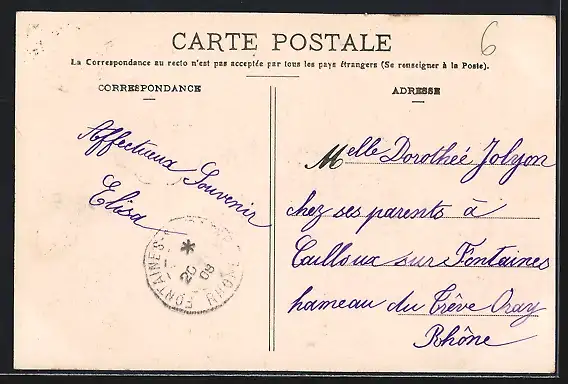 6
CARTE POSTALE
La Correspondance au recto n'est pas acceptée par tous les pays étrangers (Se renseigner à la Poste).
CORRESPONDANCE
ADRESSE
Affectueux Souvenir
Elisa
Melle Dorothée Jolyon
chez ses parents à
Cailloux sur Fontaines
hameau du Trève Oray
Rhône
FONTAINES
20
08
RHONE